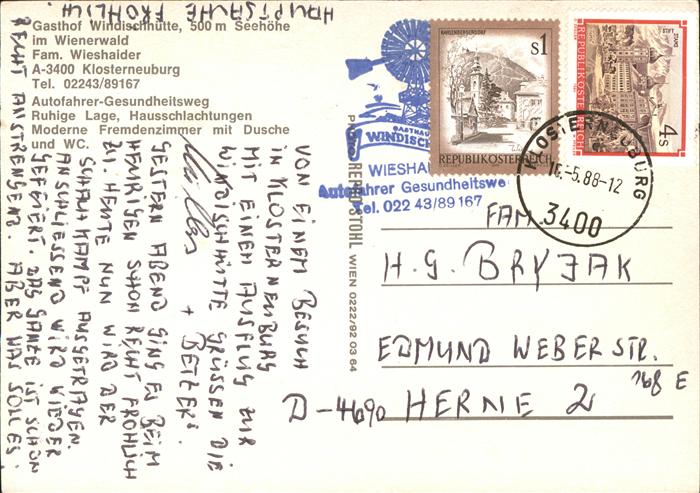 Gasthof Windischhütte, 500 m Seehöhe
im Wienerwald
Fam. Wieshaider
A-3400 Klosterneuburg
Tel. 02243/89167
Autofahrer-Gesundheitsweg
Ruhige Lage, Hausschlachtungen
Moderne Fremdenzimmer mit Dusche
und WC.
VON EINEM BESUCH
IN KLOSTERNEUBURG
MIT EINEM AUSFLUG ZUR
WINDISCHHÜTTE GRÜSSEN DIE
+ BETZERS.
GESTERN ABEND GING ES BEIM
HEURIGEN SCHON RECHT FRÖHLICH
ZU. HEUTE NUN WIRD DER
SCHAUKAMPF AUSGETRAGEN.
ANSCHLIESSEND WIRD WIEDER
GEFEIERT. DAS GANZE IST SCHON
RECHT ANSTRENGEND. ABER WAS SOLL ES.
HAUPTSACHE FRÖHLICH.
GASTHAUS
WINDISCH
WIESHA
Autofahrer Gesundheitswe
Tel. 022 43/89 167
KAHLENBERGERDORF
S1
REPUBLIK ÖSTERREICH
STIFT STAMS
REPUBLIK ÖSTERREICH
4 S
KLOSTERNEUBURG
-5.88-12
3400
STOHL WIEN 0222/92 03 64
FAM.
H. G. BRYJAK
EDMUND WEBER STR.
168 E
D-4690 HERNE 2